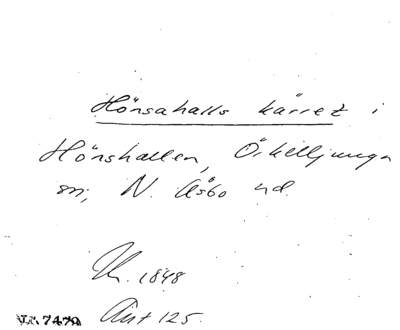 Hönsahalls kärret i
Hönshallen, Örkelljunga
sn, N. Åsbo hd.
1848
Ant 125.
7479